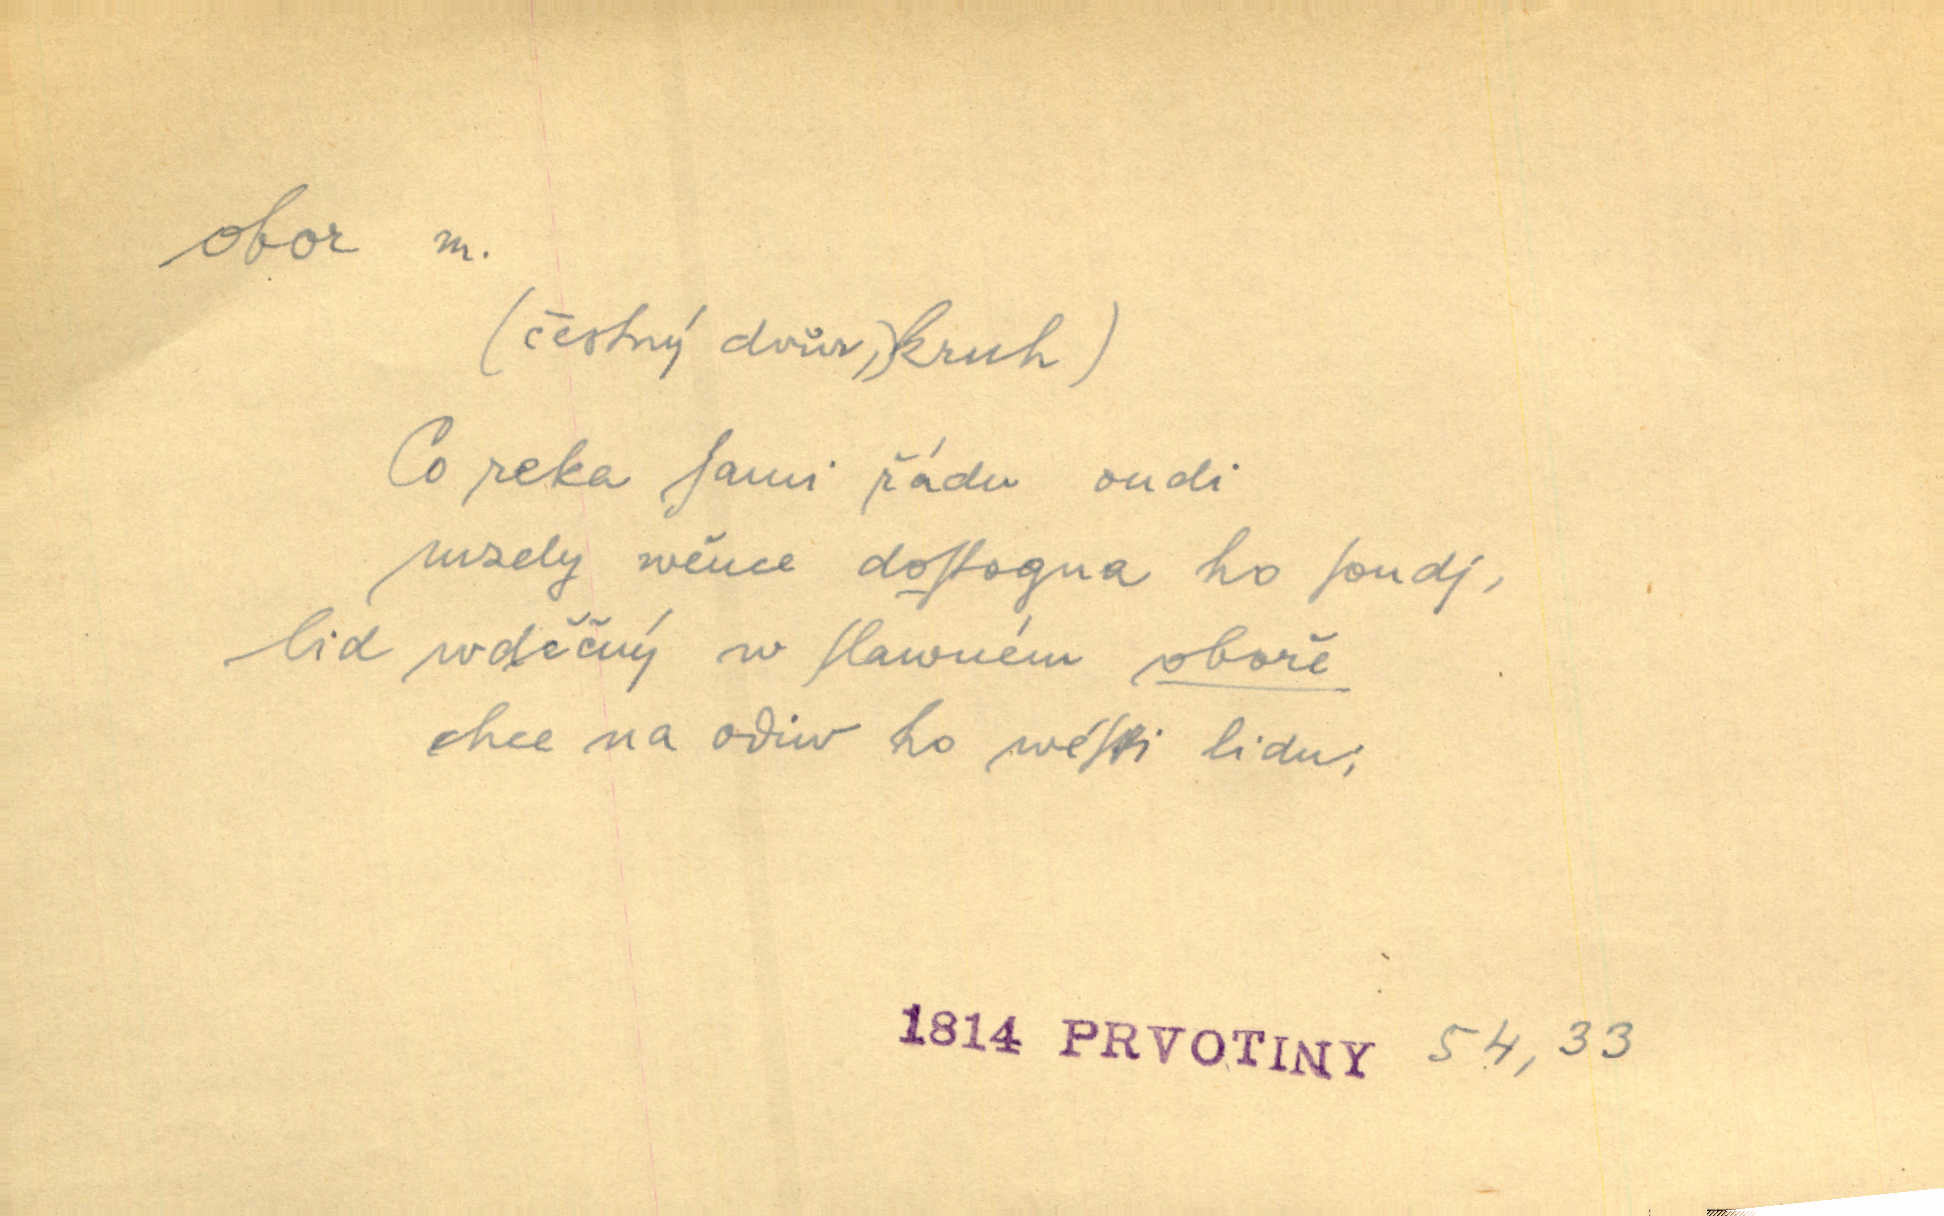 obor m.
(čestný dvůr,) kruh)
Co reka ſami řádu oudi
wzely wěnce doſtogna ho ſoudj,
lid wděčný w ſlawném oboře
chce na odiw ho wéſti lidu;
1814 PRVOTINY 54,33